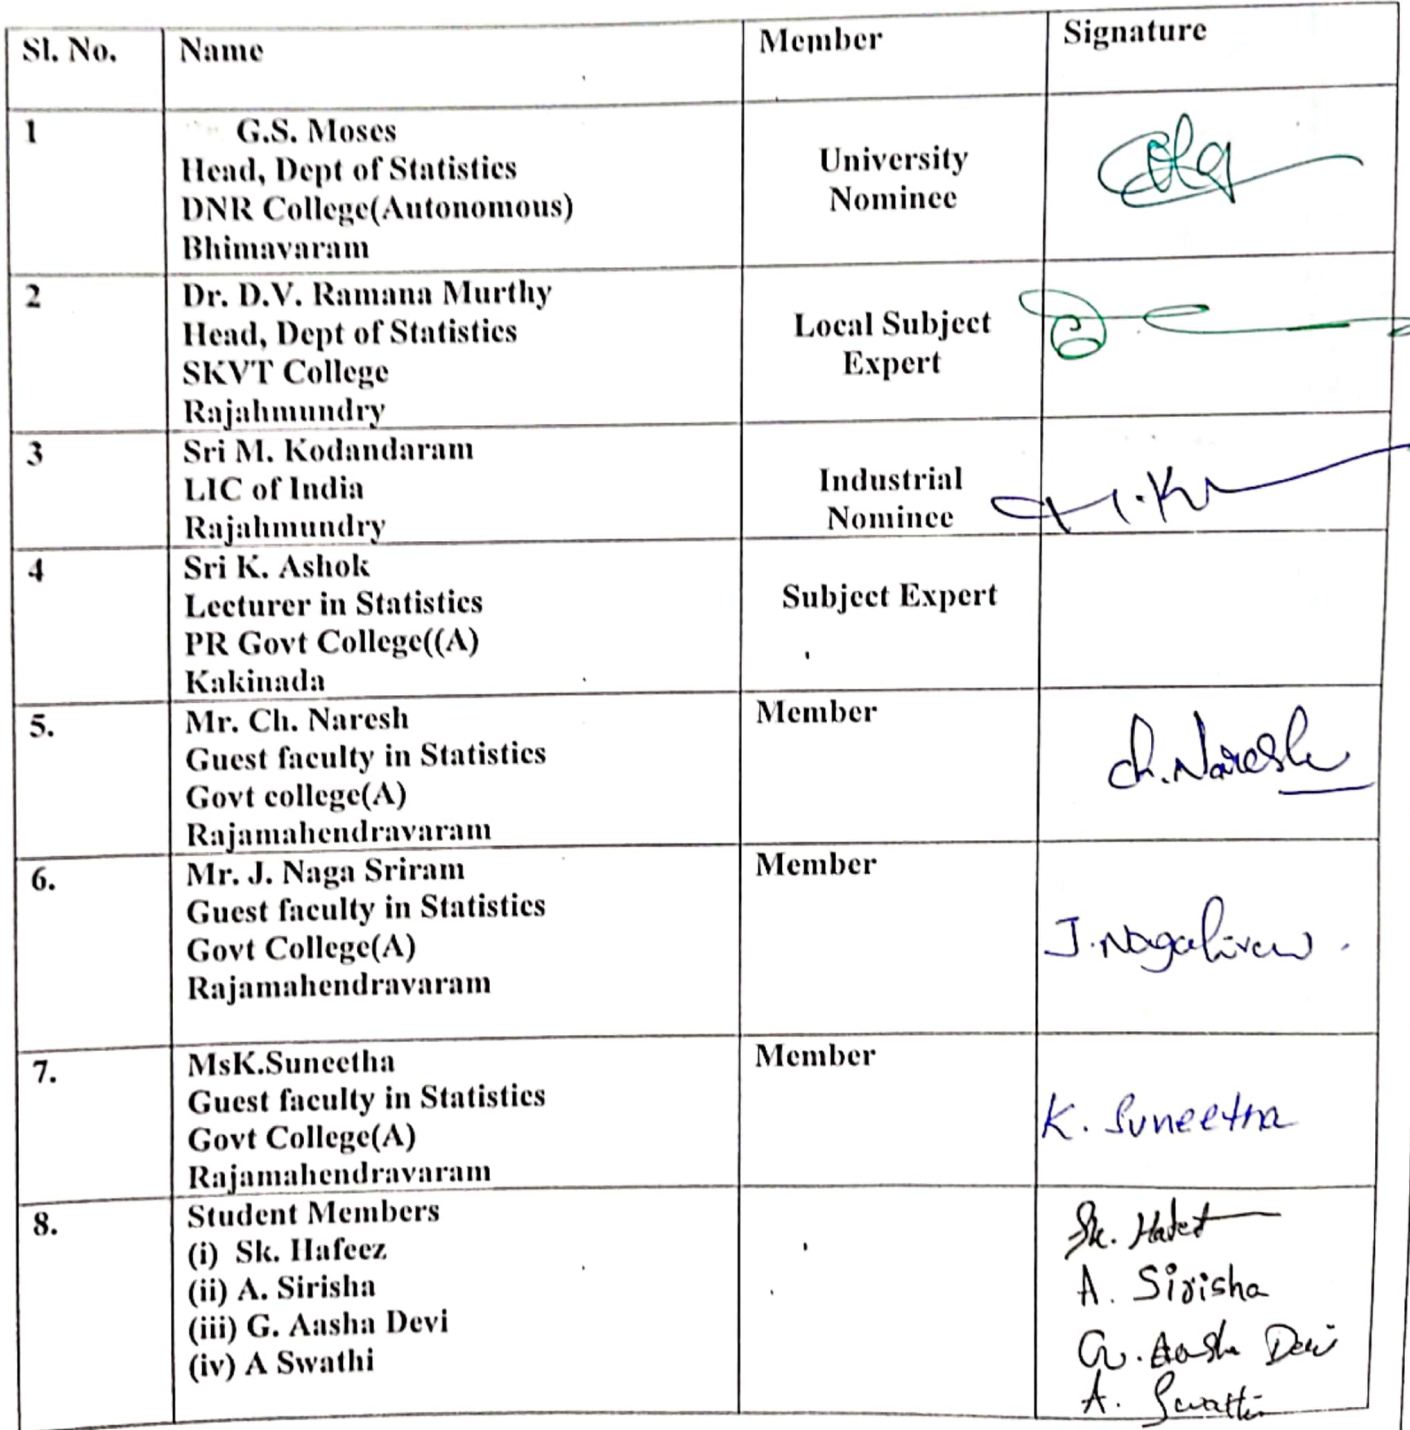 Sl. No. Name Member Signature
1 G.S. Moses
Head, Dept of Statistics
DNR College(Autonomous)
Bhimavaram
University
Nominee
2 Dr. D.V. Ramana Murthy
Head, Dept of Statistics
SKVT College
Rajahmundry
Local Subject
Expert
3 Sri M. Kodandaram
LIC of India
Rajahmundry
Industrial
Nominee
4 Sri K. Ashok
Lecturer in Statistics
PR Govt College((A)
Kakinada
Subject Expert
5. Mr. Ch. Naresh
Guest faculty in Statistics
Govt college(A)
Rajamahendravaram
Member
Ch. Naresh
6. Mr. J. Naga Sriram
Guest faculty in Statistics
Govt College(A)
Rajamahendravaram
Member
7. MsK.Suneetha
Guest faculty in Statistics
Govt College(A)
Rajamahendravaram
Member
K. Suneetha
8. Student Members
(i) Sk. Hafeez
(ii) A. Sirisha
(iii) G. Aasha Devi
(iv) A Swathi
A. Sirisha
G. Aasha Devi
A. Swathi